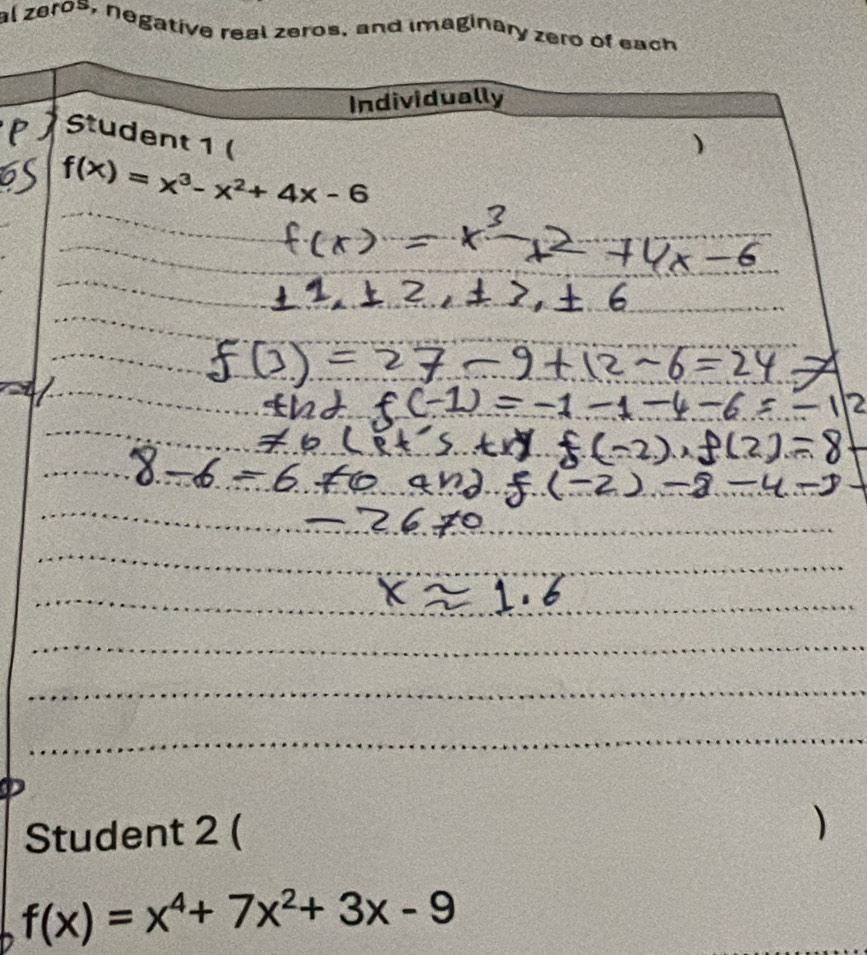 al zeros, negative real zeros, and imaginary zero of each
Individually
Student 1 ( )
f(x) = x³- x²+ 4x - 6
f(x) = x³-x2 +4x-6
±1, ± 2, ± 3, ± 6
f(3) = 27 - 9 + 12 - 6 = 24 ≠
and f(-1) = -1 -1 -4 -6 = -12
≠ 0 Let's try f(-2), f(2) = 8-
8-6 = 6 ≠0 and f(-2) -8 -4 -8 -
-26≠0
x ≈ 1.6
Student 2 ( )
f(x) = x⁴+ 7x²+ 3x - 9